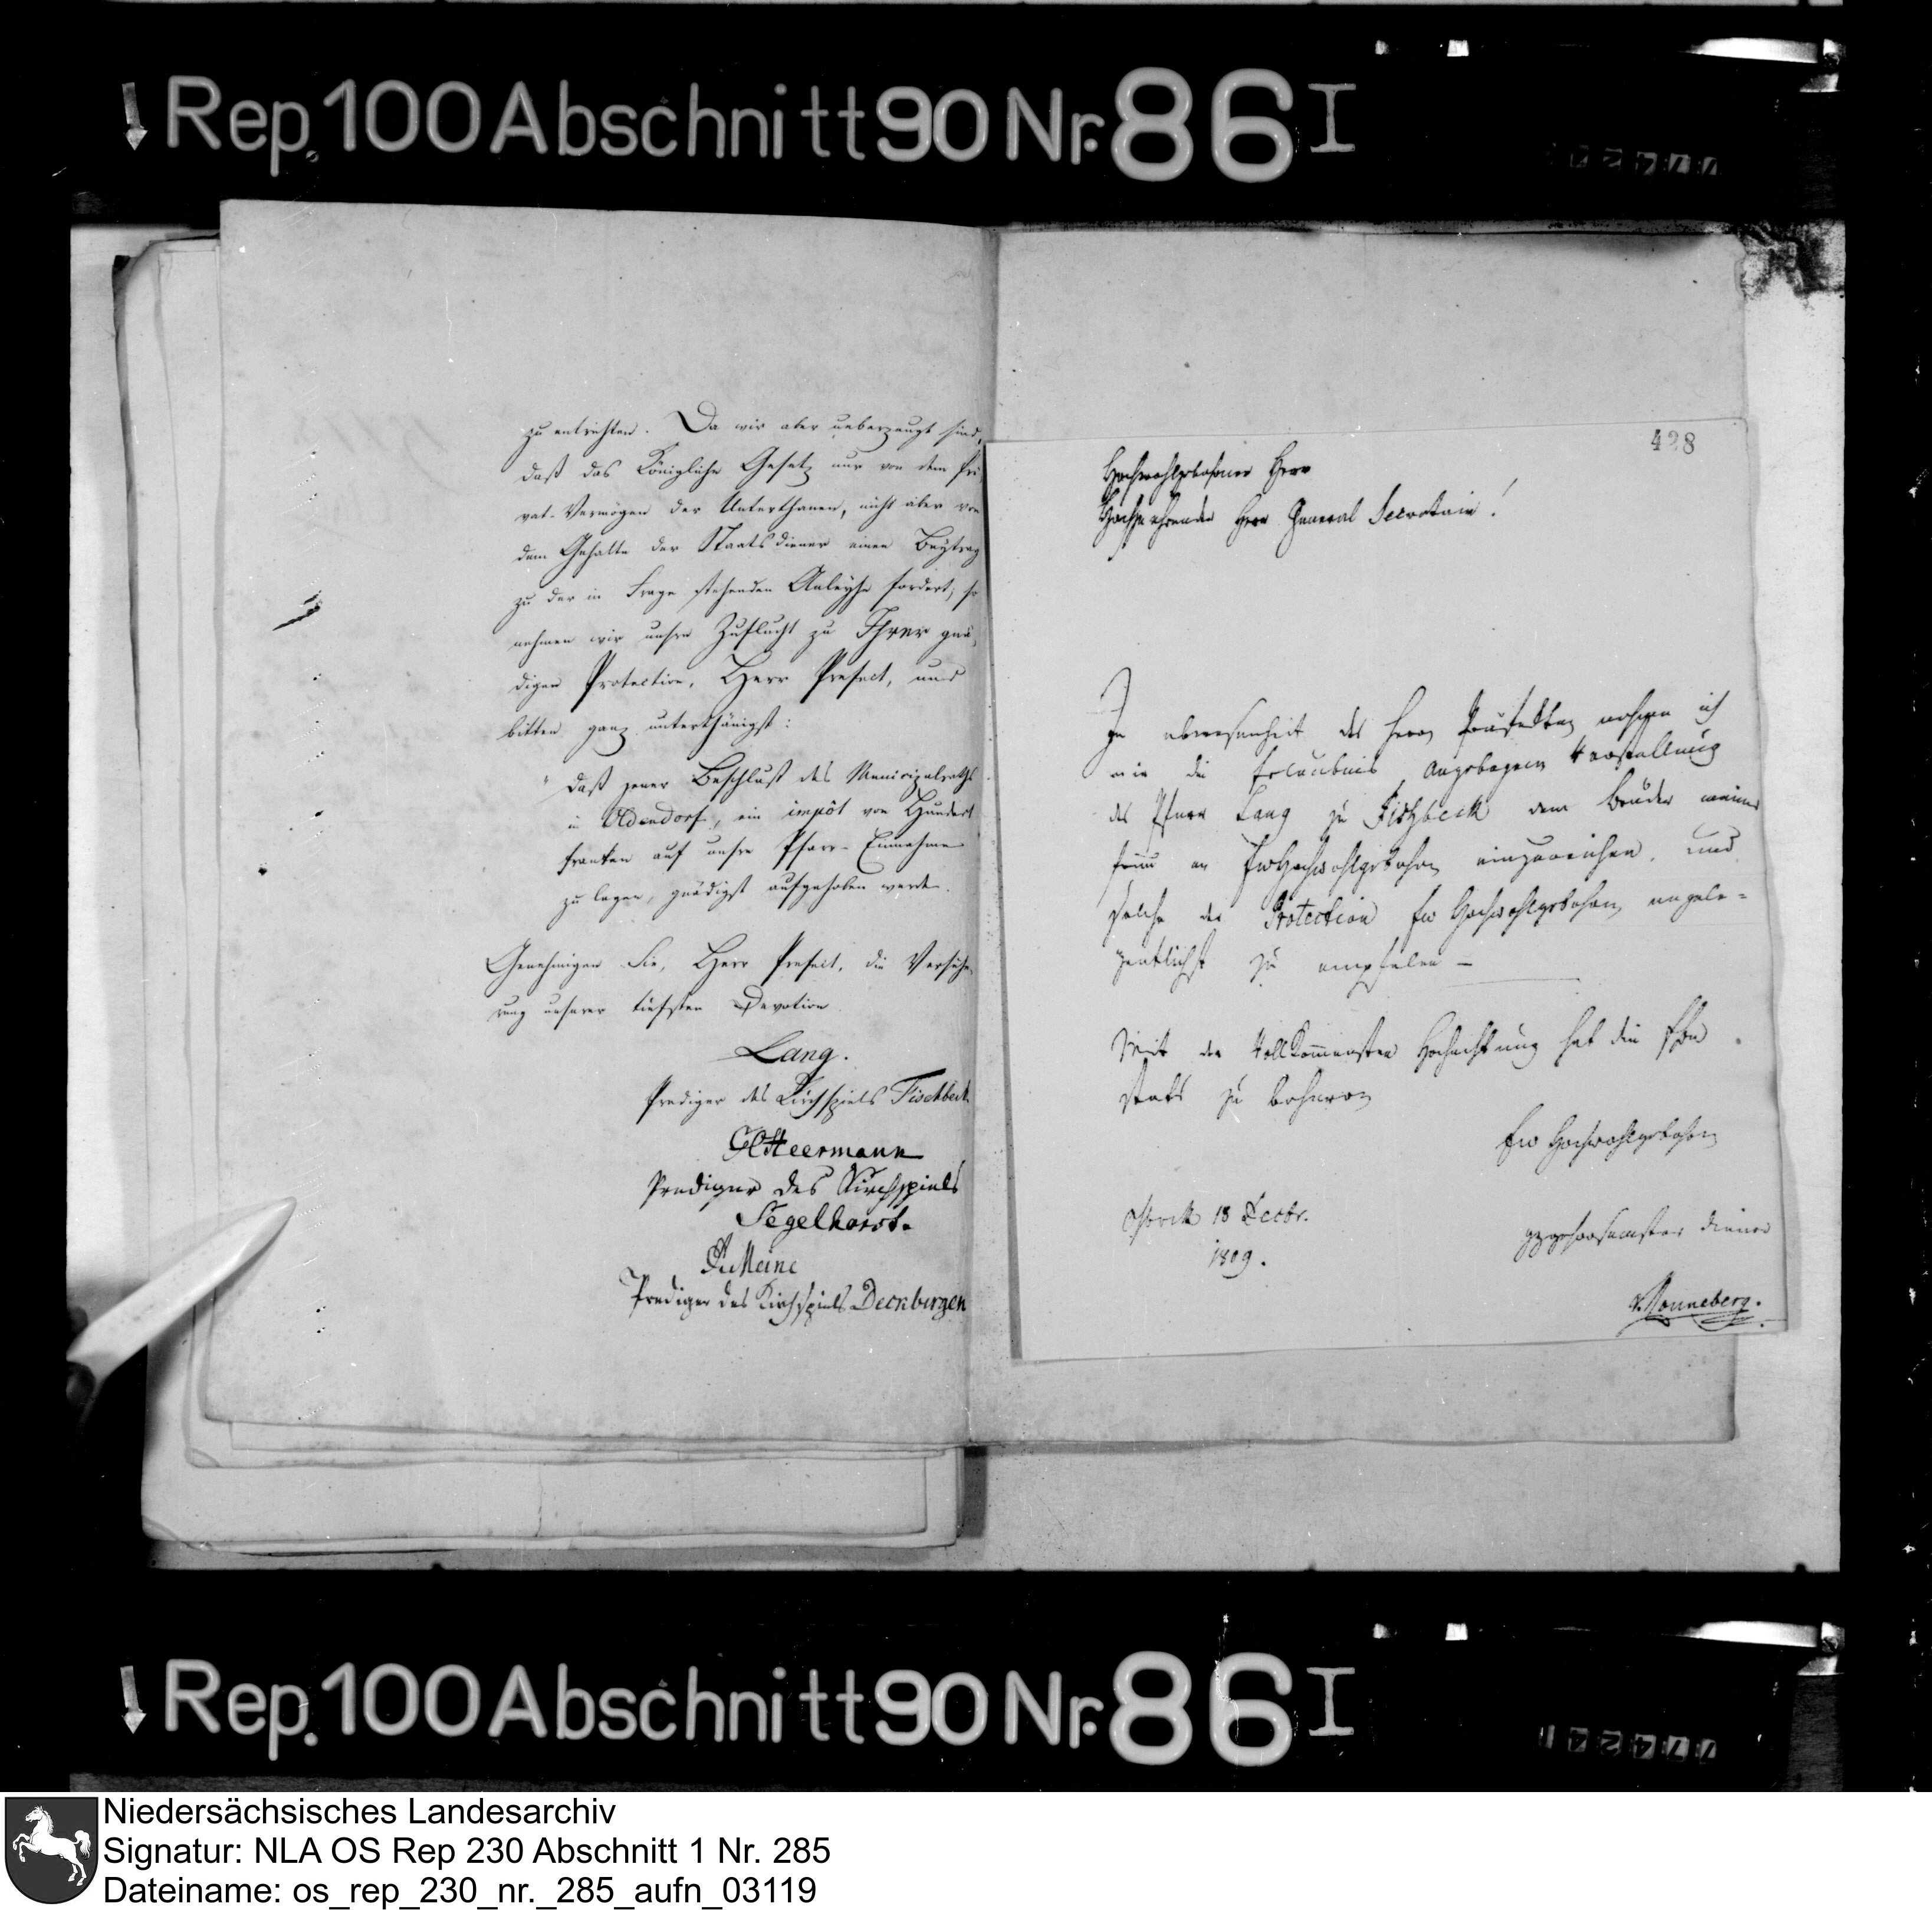 Rep. 100 Abschnitt 90 Nr. 86 I
zu entrichten. Da wir aber ueberzeugt sind,
daß das Königliche Gesetz nur von dem Pri
vat-Vermögen der Unterthanen, nicht aber von
dem Gehalte der Staatsdiener einen Beytrag
zu der in Frage stehenden Anleyhe fordert; so
nehmen wir unsre Zuflucht zu Ihrer gnä,
digen Protection, Herr Prefect, und
bitten ganz unterthänigst:
" daß jener Beschluß des Municipalraths
in Oldendorf, ein impôt von Hundert
Franken auf unsre Pfarr-Einnahme
zu legen, gnädigst aufgehoben werde.
Genehmigen Sie, Herr Prefect, die Versiche,
rung unserer tiefsten Devotion.
Lang.
Prediger des Kirchspiels Fischbeck.
Meermann
Prediger des Kirchspiels
Segelhorst.
Meine
Prediger des Kirchspiels Deckbergen
428
Hochwohlgebohrner Herr
Hochzuehrender Herr General Secretair!
In abwesenheit des Herrn Präfekten nehme ich
mir die Erlaubnis angebogene Vorstellung
des Pfarr Lang zu Fischbeck dem Bruder meiner
Frau an Ew Hochwohlgebohren einzureichen, und
solche der Protection Ew Hochwohlgebohren angele=
gentlichst zu empfelen –
Mit der Vollkommensten Hochachtung hat die Ehre
stets zu beharren
Ew Hochwohlgebohren
18 Decbr.
1809.
gehorsamster Diener
v. Ronneberg.
Rep. 100 Abschnitt 90 Nr. 86 I
77424
Niedersächsisches Landesarchiv
Signatur: NLA OS Rep 230 Abschnitt 1 Nr. 285
Dateiname: os_rep_230_nr._285_aufn_03119